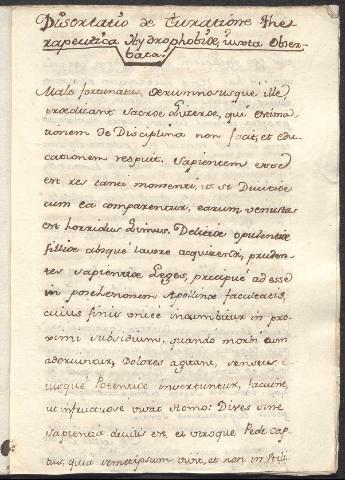 Disertatio de Curatione Ther
rapeutica Hydrophobiæ, iuxta Obser-
bata.
Male fortunatus, ærumnosusqué ille
prædicant Sacræ Literæ, qui extima-
tionem de Disciplina non facit, et edu-
cationem respuit. Sapientem esse
est res tanti momenti, ut si Divitiæ
cum ea comparentur, earum venustas
est horridus Limus. Delitiæ opulentiæ
filliæ absqué lavore acquirendi, pruden-
tes sapientiæ Leges, præcipué ad esse
in facultatis,
cuius finis unicé incumbitur in pro-
ximi subsidium, quando morbi eum
adoriuntur, Dolores agitant, sensus
eiusqué Potentiæ invertuntur, faciunt,
ut infructuose vivat Homo: Dives sine
sapientia devilis est, et utroque Pede cap-
tus, quia semetipsum vivit, et non in